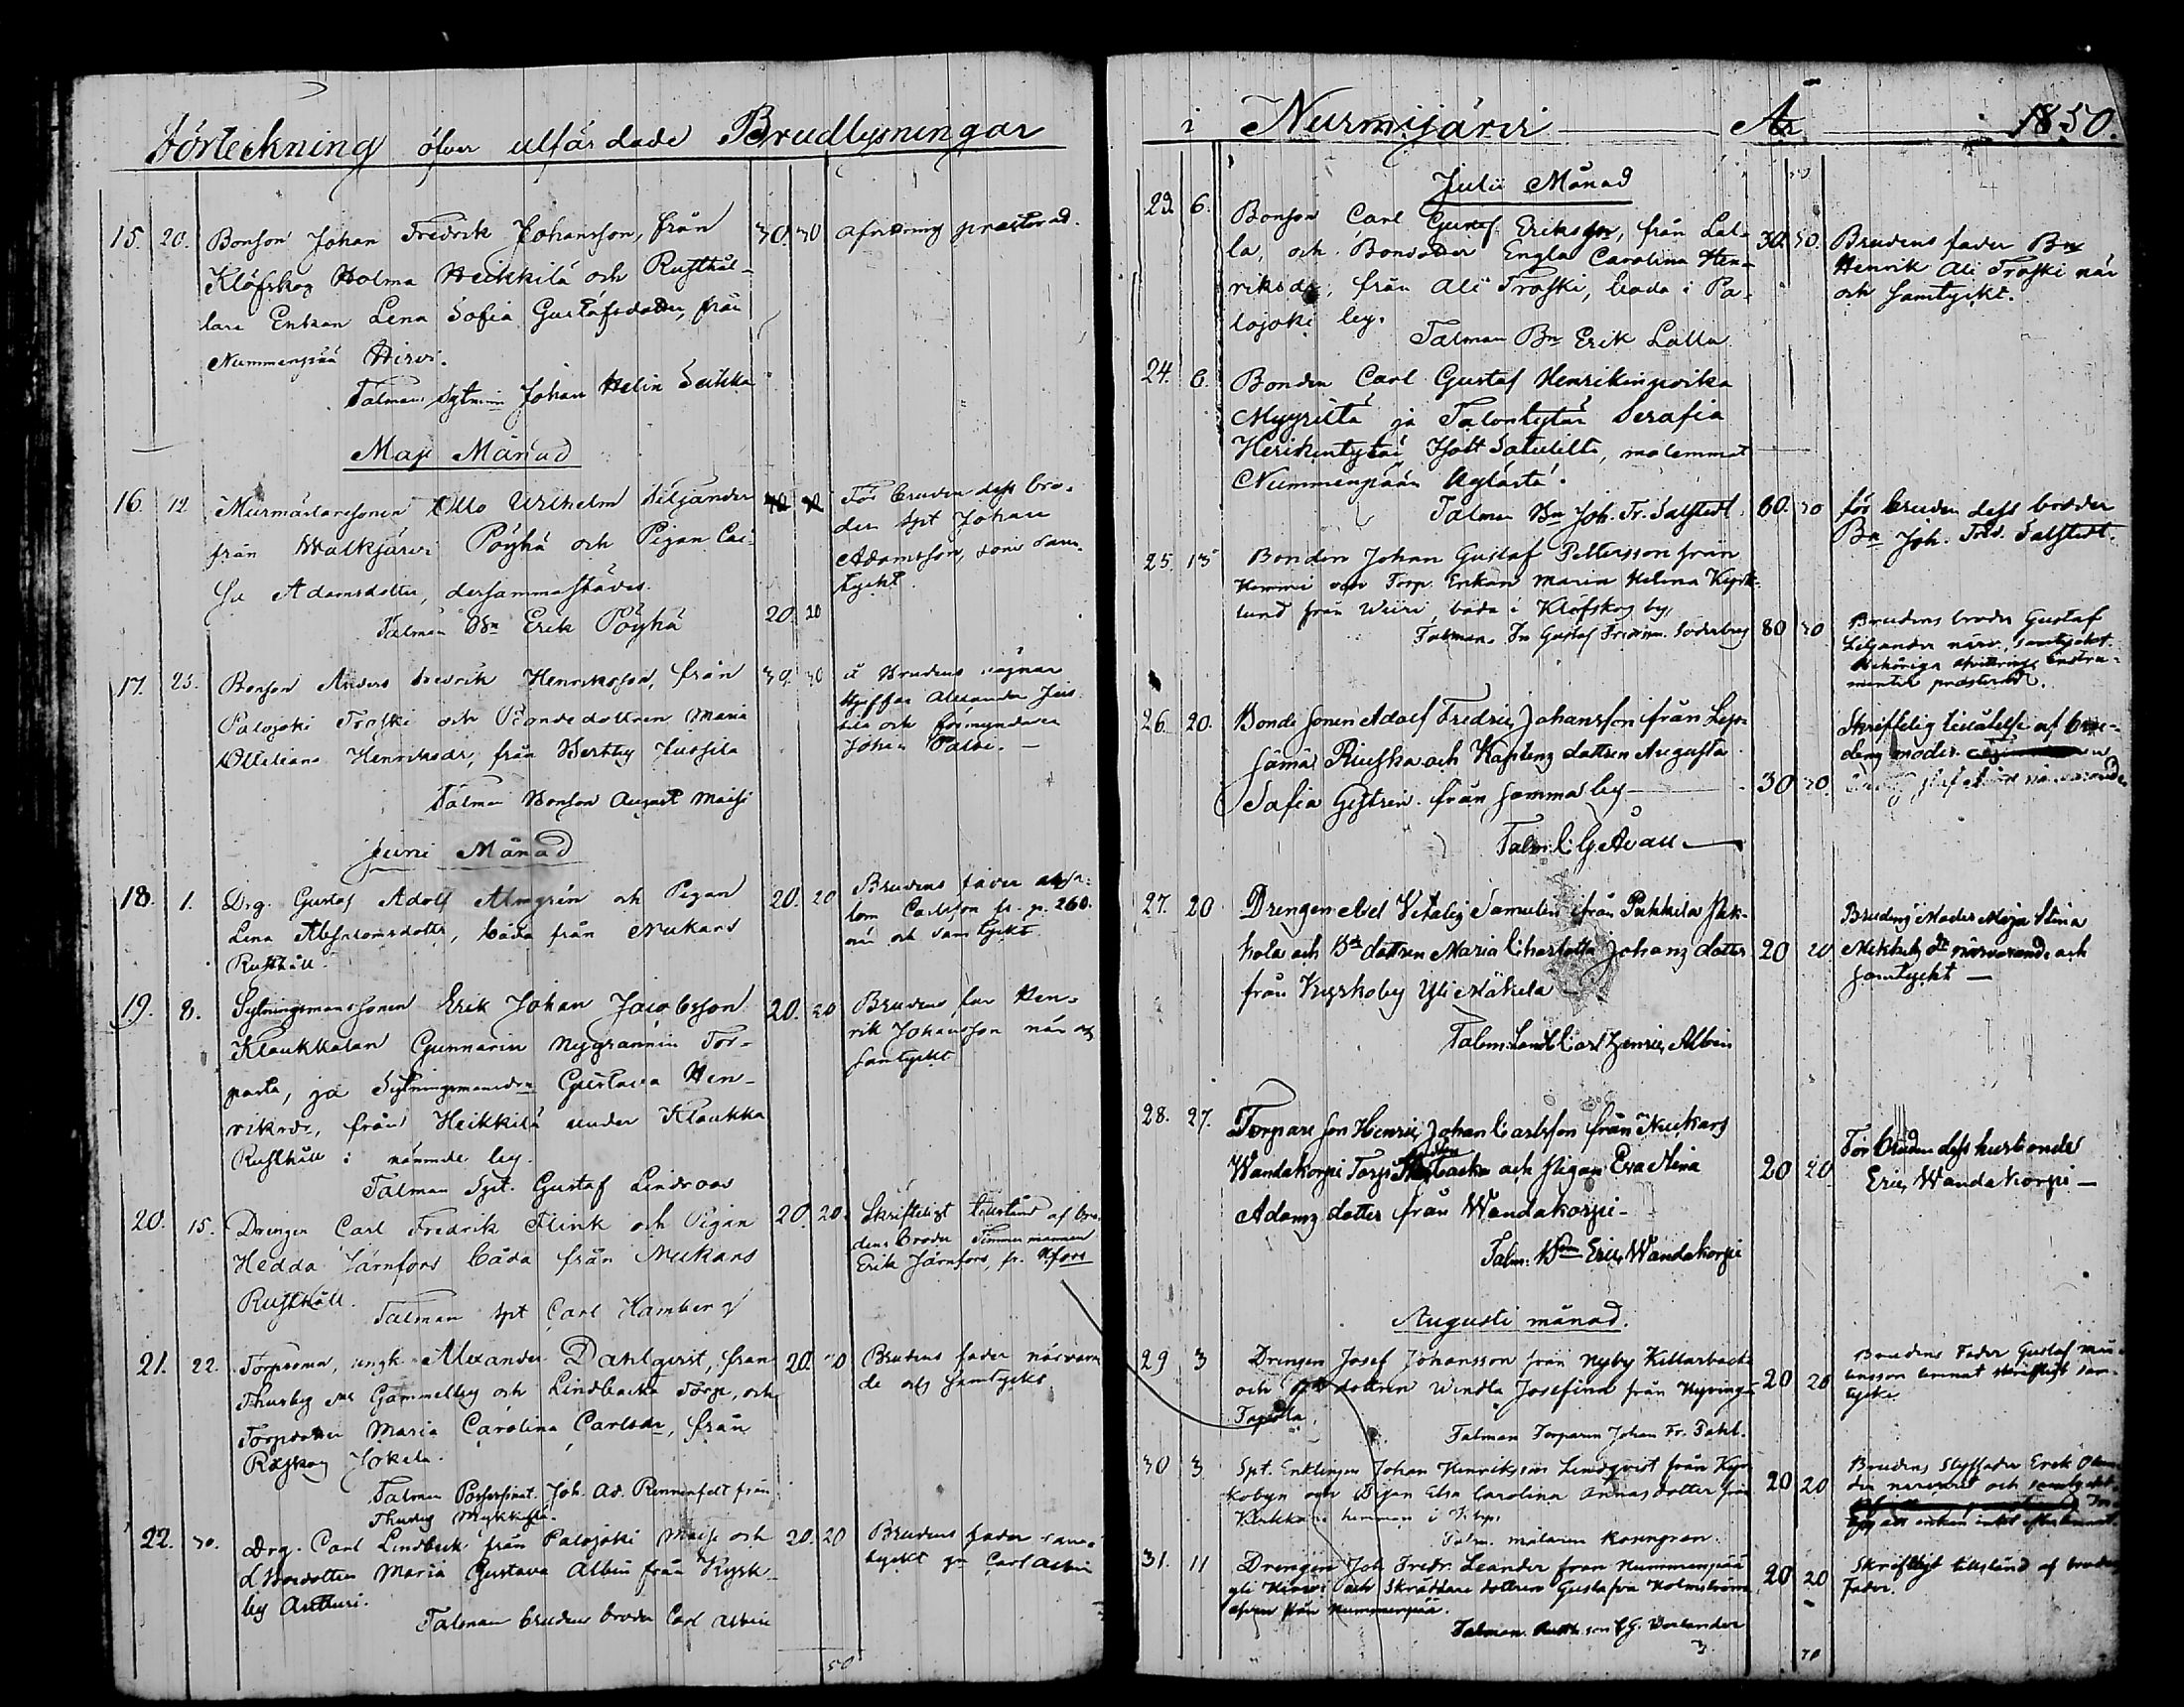 Förteckning öfver utfärdade Brudlysningar
15. 20. Bonson Johan Fredrik Johansson, från 30. 30 afvittring præsterad.
Klöfskog Holma Heikkilä och Rusthål-
lare Enkan Lena Sofia Gustafsdotter, från
Nummenpää Hirvi.
Talman Sytnin Johan Helin Seikka
Maji Månad
16. 12 Murmästaresonen Otto Wilhelm Siljander
från Walkjärvi Pöyhä och Pigan Cai-
sa Adamsdotter, dersammastädes.
Talman Bn Erik Pöyhä 20. 20
För bruden dess bro-
der spt Johan
Adamsson, som sam-
tyckt.
17. 25. Bonson Anders Fredrik Henriksson, från 30. 30
Palojoki Troski och Bondedottren Maria
Ottiliana Henriksdr, från Hertby Jussila
Talman Bonson August Maisi
å Brudens vägnar
Styffar Alexander Jus-
sila och förmyndaren
Johan Palvi. —
Juni Månad
18. 1. Drg. Gustaf Adolf Almgrén och Pigan 20. 20
Lena Absalomsdotter, båda från Nukars
Rusthåll.
Brudens fader Absa-
lom Carlsson fr. p. 260.
när och samtyckt
19. 8. Sytningsmanssonen Erik Johan Jacobsson 20. 20
Klaukkalan Gunnarin Nygrannin Tor-
parta, ja Sytningsmansdr Gustava Hen-
riksdr, från Heikkilä under Klaukka
Rusthåll i nämnde by.
Talman Spt. Gustaf Lindroos
Brudens far Hen-
rik Johansson när och
samtyckt
20. 15. Drengen Carl Fredrik Flink och Pigan 20. 20.
Hedda Järnfors båda från Nukars
Rusthåll.
Talman spt Carl Hamberg
Skriftligt tillstånd af bru-
dens broder Timmermannen
Erik Järnfors, fr. Hfors
21. 22. Torparen, ungk. Alexander Dahlqvist, från 20. 20
Thusby sn Gammelby och Lindbacka Torp, och
Torpdotter Maria Carolina Carlsdr, från
Räfskog Jokela.
Talman Possessionat. Joh. Ad. Rennenfelt från
Thusby Mykkylä.
Brudens fader närvaran
de och samtyckt
22. 30. Drg. Carl Lindbeck från Palojoki Maisi och 20. 20
Bodotter Maria Gustava Albin från Kyrk-
by Antturi.
Talman brudens broder Carl Albin
Brudens fader sam-
tyckt gm Carl Albin
50
i Nurmijärvi År 1850.
Julii Månad
23. 6. Bonson Carl Gustaf Eriksson, från Lal-
la, och Bondotter Engla Carolina Hen- 30. 30.
riksdr, från Ali Troski, båda i Pa-
lojoki by.
Talman Bn Erik Lalla
Brudens fader Bn
Henrik Ali Troski när
och samtyckt.
24. 6. Bonden Carl Gustaf Henrikinpoika
Myyriltä ja Talontytär Serafia
Henrikintytär Isott Satulilta, molemmat
Nummenpään kylästä.
Talman Bn Joh. Fr. Salstedt. 60. 30
för bruden dess broder
Bn Joh. Fred. Salstedt.
25. 13 Bonden Johan Gustaf Pettersson från
Hemmi och Torp. Enkan Maria Helena Kyrk-
lund från Wiiri, båda i Klöfskog by,
Talman Gustaf Söderberg 80 30
Brudens broder Gustaf
Liljander närv. samtyckt.
Behöriga afvittrings instru-
menter præsterade.
26. 20. Bonde sonen Adolf Fredric Johansson ifrån Lep-
sämä Riuska och Kaptens dottren Augusta
Sofia Gestrin från samma by 30 30.
Talm. C. G. Avall
Skriftelig tillåtelse af bru-
dens moder.
27. 20 Drengen Abel Vitalis Samulin ifrån Pukkila Juk-
kola och Bd dottren Maria Charlotta Johans dotter 20 20
från Kyrkoby Yli Mäkela
Talm: Landb Carl Henric Albin
Brudens Moder Maja Stina
Mikkels dtr närvarande och
samtyckt —
28. 27. Torpare son Henric Johan Carlsson från Nukars
Wandakorpi Torp och Pigan Eva Stina 20 20
Adams dotter från Wandakorpi —
Talm: Bon Eric Wandakorpi
För bruden dess husbonde
Eric Wandakorpi —
Augusti månad.
29 3 Drengen Josef Johansson från Nyby Killarbacka
och dottren Windla Josefina från Hyvinge 20 20
Tapola.
Talman Torparen Johan Fr. Dahl.
Brudens Fader Gustaf
lemnat skriftligt sam-
tycke
30 3 Spt. Enklingen Johan Henriksson Lindqvist från Kyr-
kobyn och Pigan Elsa Carolina Annas dotter från 20 20
hemman i Kbyn.
Talm. målaren Rosengren.
Brudens Styffader Erik
närvarat och samtyckt.
31. 11 Drengen Joh Fredr. Leander från Nummenpää
yli Hirvi och Skräddare dottren Gustafva Holmström 20 20
äfven från Nummenpää.
Talman Rusth. son C. G. Verlander
Skriftligt tillstånd af brudens
Fader.
70